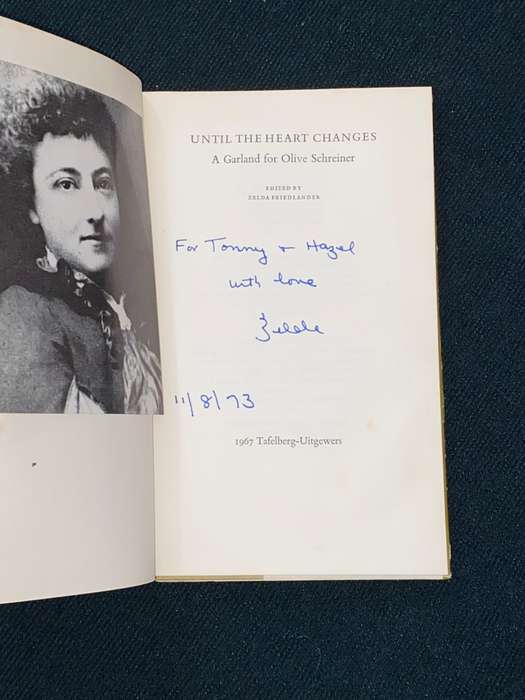 UNTIL THE HEART CHANGES
A Garland for Olive Schreiner
EDITED BY
ZELDA FRIEDLANDER
For Tonny + Hazel
with love
Zelda
11/8/73
1967 Tafelberg-Uitgewers